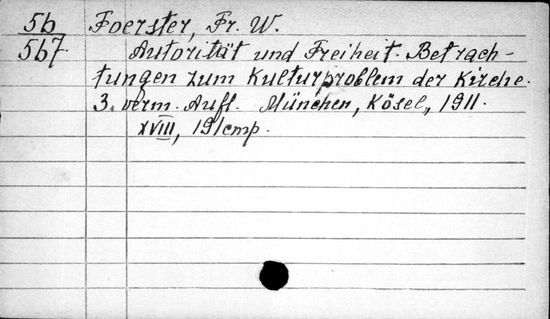 56 Foerster, Fr. W.
567. Autorität und Freiheit. Betrach-
tungen zum Kulturproblem der Kirche.
3. verm. Aufl. München, Kösel, 1911.
XVIII, 191 cmp.